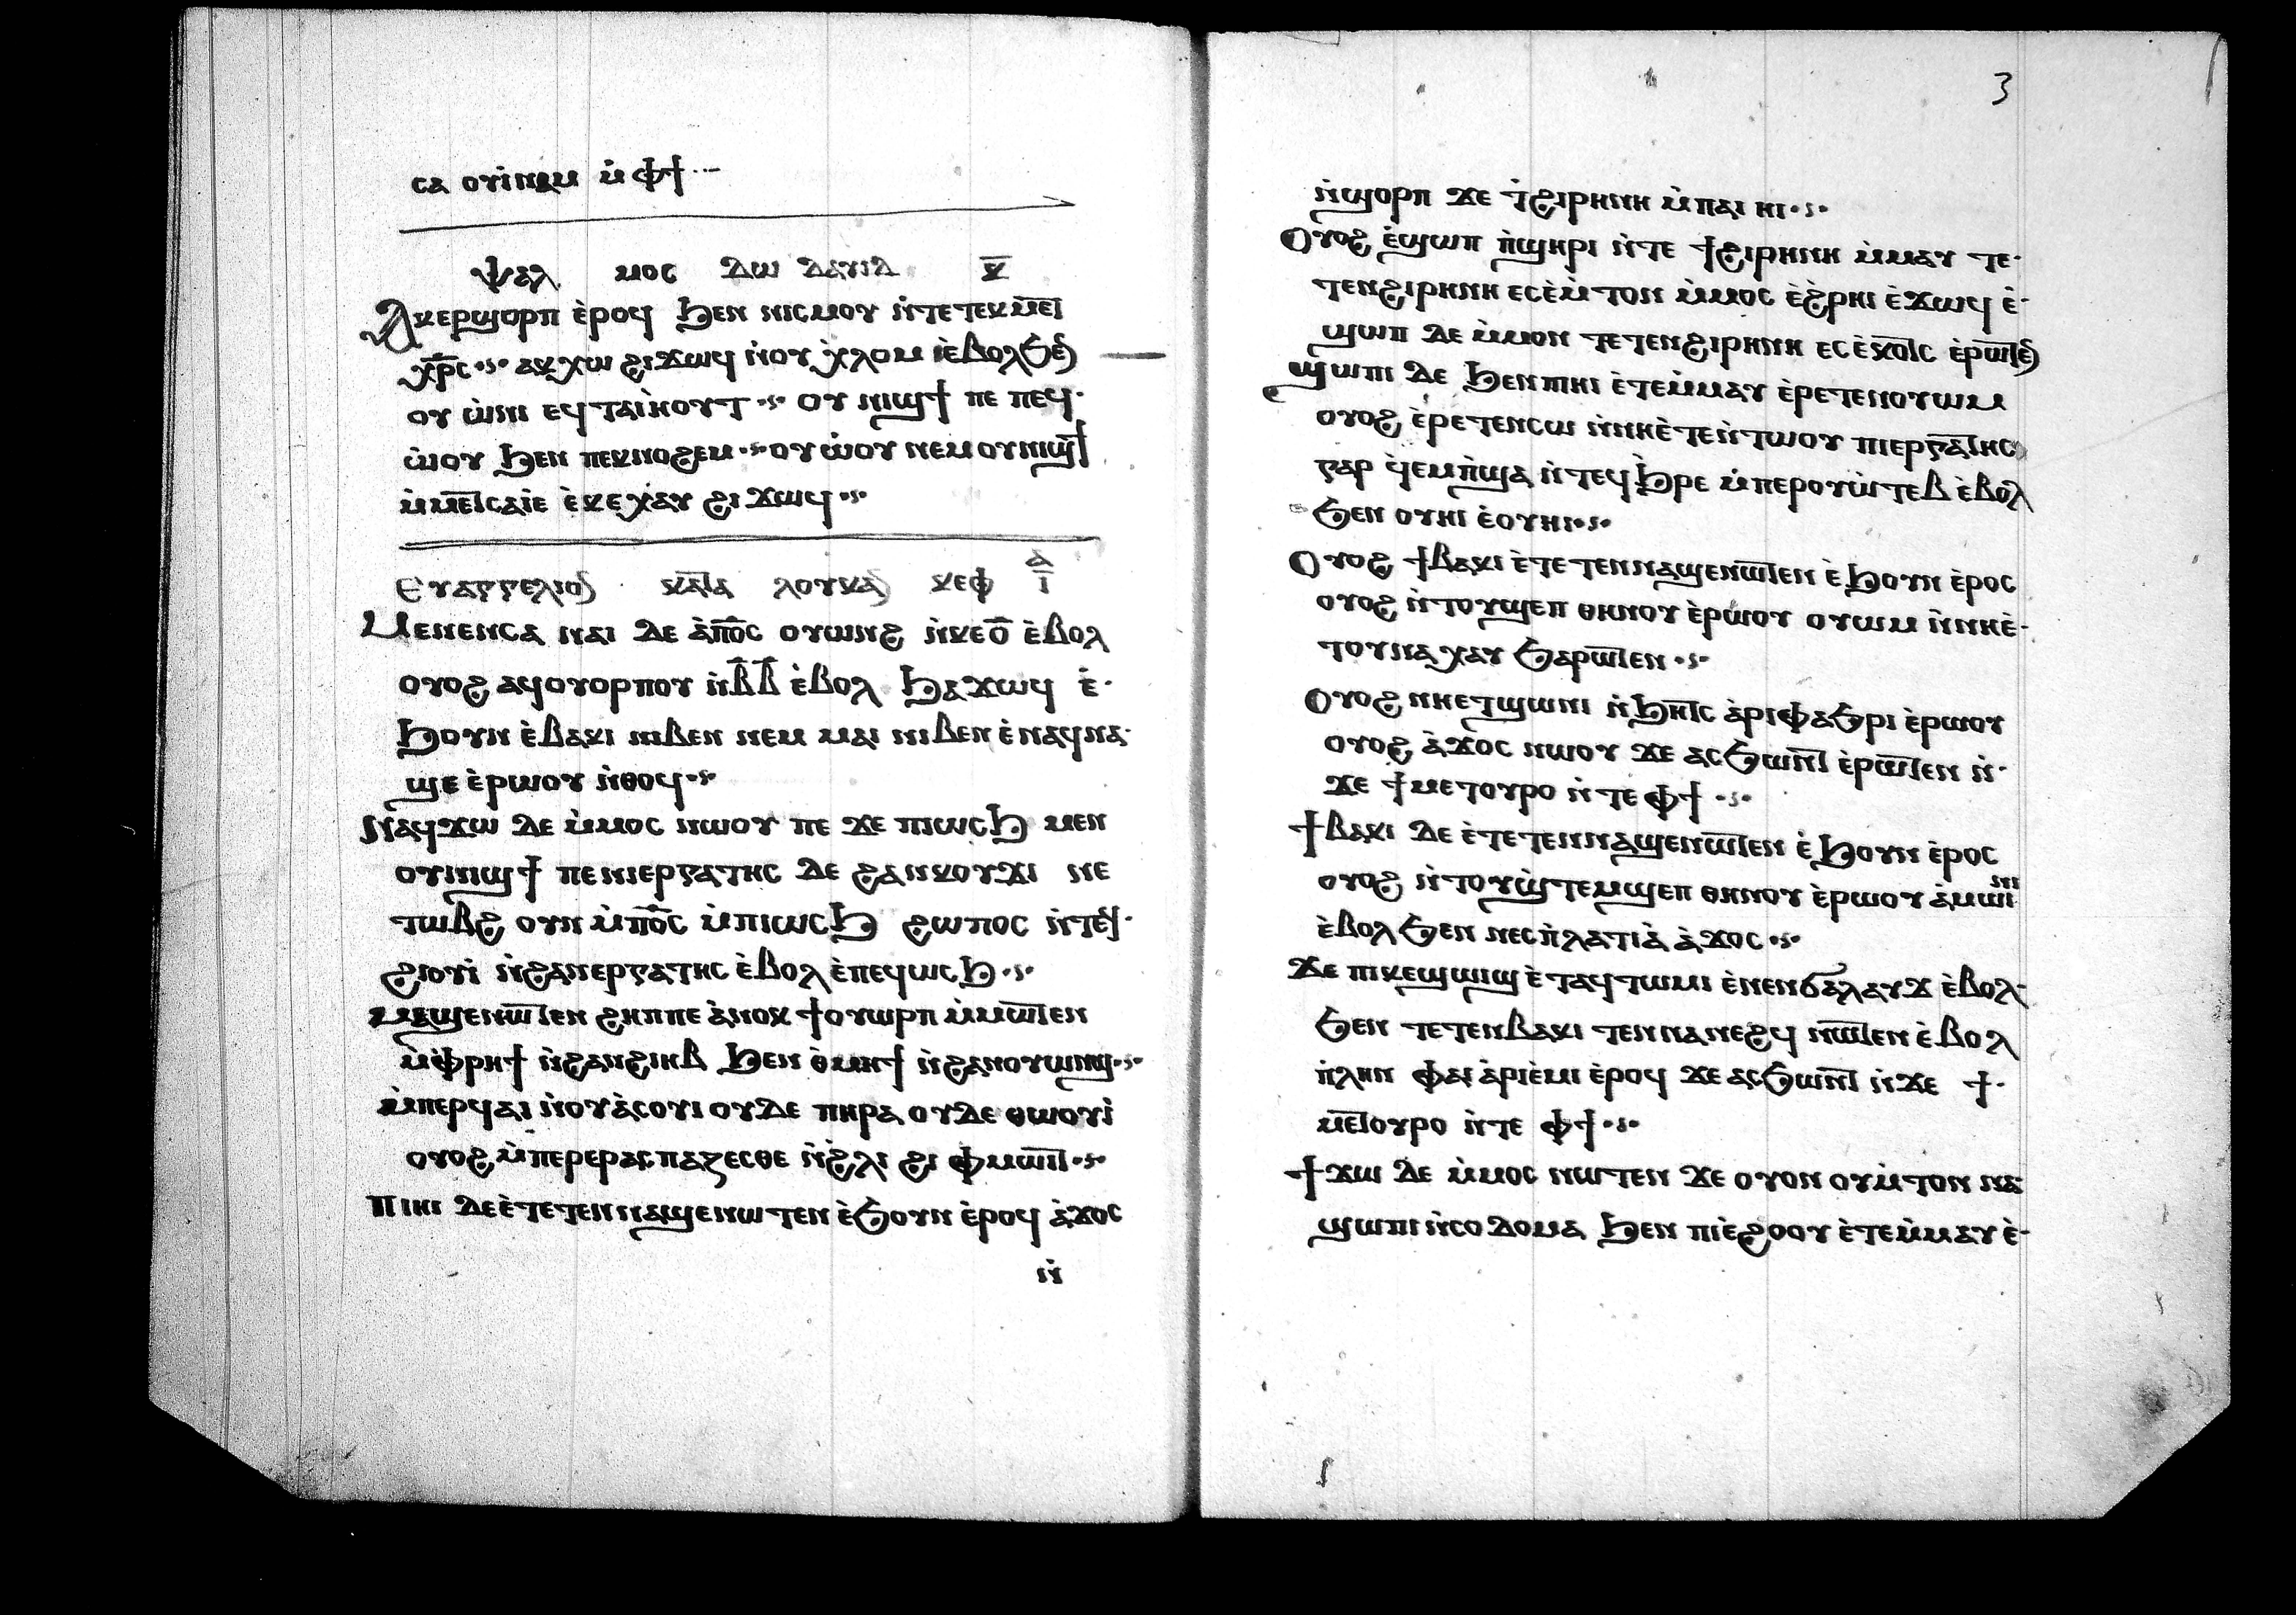 ⲥⲁ ⲟⲩⲓ̀ⲛⲁⲙ ⲙ̀ⲫϯ
ⲯⲁⲗ ⲙⲟⲥ ⲇⲱ ⲇⲁⲩⲓⲇ ⲕ̅
Ⲁⲕⲉⲣϣⲟⲣⲡ ⲉ̀ⲣⲟϥ ϧⲉⲛ ⲛⲓⲥⲙⲟⲩ ⲛ̀ⲧⲉ ⲧⲉⲕⲙⲉⲧ
ⲭⲣ̅ⲥ ⲁⲕⲭⲱ ϩⲓϫⲱϥ ⲛ̀ⲟⲩ ⲭ̀ⲗⲟⲙ ⲉ̀ⲃⲟⲗϧⲉⲛ
ⲟⲩ ⲱ̀ⲛⲓ ⲉϥⲧⲁⲓⲏⲟⲩⲧ ⲟⲩ ⲛⲓϣϯ ⲡⲉ ⲡⲉϥ
ⲱ̀ⲟⲩ ϧⲉⲛ ⲡⲉⲕⲛⲟϩⲉⲙ ⲟⲩⲱ̀ⲟⲩ ⲛⲉⲙ ⲟⲩⲛⲓϣϯ
ⲙ̀ⲙⲉⲧⲥⲁⲓⲉ̀ ⲉ̀ⲕⲉⲭⲁⲩ ϩⲓ ϫⲱϥ
Ⲉⲩⲁⲅⲅⲉⲗⲓⲟⲛ ⲕⲁⲧⲁ ⲗⲟⲩⲕⲁⲛ ⲕⲉⲫ ⲓ̅ ⲁ̅
Ⲙⲉⲛⲉⲛⲥⲁ ⲛⲁⲓ ⲇⲉ ⲁ̀ⲡⲟ̅ⲥ ⲟⲩⲱⲛϩ ⲛ̀ⲕⲉⲟ̅ ⲉ̀ⲃⲟⲗ
ⲟⲩⲟϩ ⲁϥⲟⲩⲟⲣⲡⲟⲩ ⲛ̀ⲃ̅ⲃ̅ ⲉ̀ⲃⲟⲗ ϧⲁϫⲱϥ ⲉ̀
ϧⲟⲩⲛ ⲉ̀ⲃⲁⲕⲓ ⲛⲓⲃⲉⲛ ⲛⲉⲙ ⲙⲁⲓ ⲛⲓⲃⲉⲛ ⲉ̀ⲛⲁϥⲛⲁ
ϣⲉ ⲉ̀ⲣⲱⲟⲩ ⲛ̀ⲑⲟϥ
Ⲛⲁϥϫⲱ ⲇⲉ ⲙ̀ⲙⲟⲥ ⲛⲱⲟⲩ ⲡⲉ ϫⲉ ⲡⲓⲱⲥϧ ⲙⲉⲛ
ⲟⲩⲛⲓϣϯ ⲡⲉ ⲛⲓⲉⲣⲅⲁⲧⲏⲥ ⲇⲉ ϩⲁⲛⲕⲟⲩϫⲓ ⲛⲉ
ⲧⲱⲃϩ ⲟⲩⲛ ⲙ̀ⲡⲟ̅ⲥ ⲙ̀ⲡⲓⲱⲥϧ ϩⲱⲡⲟⲥ ⲛ̀ⲧⲉϥ
ϩⲓⲟⲩⲓ̀ ⲛ̀ϩⲁⲛⲉⲣⲅⲁⲧⲏⲥ ⲉ̀ⲃⲟⲗ ⲉ̀ⲡⲉϥⲱⲥϧ
ⲙⲁϣⲉⲛⲱⲧⲉⲛ ϩⲏⲡⲡⲉ ⲁ̀ⲛⲟⲕ ϯⲟⲩⲱⲣⲡ ⲙ̀ⲙⲱⲧⲉⲛ
ⲙ̀ⲫⲣⲏϯ ⲛ̀ϩⲁⲛϩⲓⲏⲃ ϧⲉⲛ ⲑ̀ⲙⲏϯ ⲛ̀ϩⲁⲛⲟⲩⲱⲛϣ
ⲙ̀ⲡⲉⲣϥⲁⲓ ⲛ̀ⲟⲩⲁ̀ⲥⲟⲩⲓ ⲟⲩⲇⲉ ⲡⲏⲣⲁ ⲟⲩⲇⲉ ⲑⲱⲟⲩⲓ̀
ⲟⲩⲟϩ ⲙ̀ⲡⲉⲣⲉⲣⲁⲥⲡⲁⲍⲉⲥⲑⲉ ⲛ̀ϩ̀ⲗⲓ ϩⲓ ⲫⲙⲱⲓⲧ
ⲡⲓⲏⲓ ⲇⲉ ⲉ̀ⲧⲉⲧⲉⲛⲛⲁϣⲉⲛⲱⲧⲉⲛ ⲉ̀ϧⲟⲩⲛ ⲉ̀ⲣⲟϥ ⲁ̀ϫⲟⲥ
ⲛ̀
3
ⲛ̀ϣⲟⲣⲡ ϫⲉ ϯϩⲓⲣⲏⲛⲏ ⲙ̀ⲡⲁⲓ ⲏⲓ
Ⲟⲩⲟϩ ⲉ̀ϣⲱⲡ ⲡ̀ϣⲏⲣⲓ ⲛ̀ⲧⲉ ϯϩⲓⲣⲏⲛⲏ ⲙ̀ⲙⲁⲩ ⲧⲉ
ⲧⲉⲛϩⲓⲣⲏⲛⲏ ⲉⲥⲉ̀ⲙ̀ⲧⲟⲛ ⲙ̀ⲙⲟⲥ ⲉ̀ϩ̀ⲣⲏⲓ ⲉ̀ϫⲱϥ ⲉ̀
ϣⲱⲡ ⲇⲉ ⲙ̀ⲙⲟⲛ ⲧⲉⲧⲉⲛϩⲓⲣⲏⲛⲏ ⲉⲥⲉ̀ⲕⲟⲧⲥ ⲉ̀ⲣⲱⲧⲉⲛ
ϣⲱⲡⲓ ⲇⲉ ϧⲉⲛ ⲡⲓⲏⲓ ⲉ̀ⲧⲉⲙ̀ⲙⲁⲩ ⲉ̀ⲣⲉⲧⲉⲛⲟⲩⲱⲙ
ⲟⲩⲟϩ ⲉ̀ⲣⲉⲧⲉⲛⲥⲱ ⲛ̀ⲛⲏⲉ̀ⲧⲉⲛ̀ⲧⲱⲟⲩ ⲡⲓⲉⲣⲅⲁⲧⲏⲥ
ⲅⲁⲣ ϥ̀ⲉⲙⲡ̀ϣⲁ ⲛ̀ⲧⲉϥϧ̀ⲣⲉ ⲙ̀ⲡⲉⲣⲟⲩⲱ̀ⲧⲉⲃ ⲉ̀ⲃⲟⲗ
ϧⲉⲛ ⲟⲩⲏⲓ ⲉ̀ⲟⲩⲏⲓ
Ⲟⲩⲟϩ ϯⲃⲁⲕⲓ ⲉ̀ⲧⲉⲧⲉⲛⲛⲁϣⲉⲛⲱⲧⲉⲛ ⲉ̀ϧⲟⲩⲛ ⲉ̀ⲣⲟⲥ
ⲟⲩⲟϩ ⲛ̀ⲧⲟⲩϣⲉⲡ ⲑⲏⲛⲟⲩ ⲉ̀ⲣⲱⲟⲩ ⲟⲩⲱⲙ ⲛ̀ⲛⲏⲉ̀
ⲧⲟⲩⲛⲁⲭⲁⲩ ϧⲁⲣⲱⲧⲉⲛ
Ⲟⲩⲟϩ ⲛⲏⲉⲧϣⲱⲛⲓ ⲛ̀ϧⲏⲧⲥ ⲁ̀ⲣⲓⲫⲁϧⲣⲓ ⲉ̀ⲣⲱⲟⲩ
ⲟⲩⲟϩ ⲁ̀ϫⲟⲥ ⲛⲱⲟⲩ ϫⲉ ⲁⲥϧⲱⲛⲧ ⲉ̀ⲣⲱⲧⲉⲛ ⲛ̀
ϫⲉ ϯⲙⲉⲧⲟⲩⲣⲟ ⲛ̀ⲧⲉ ⲫϯ
ϯⲃⲁⲕⲓ ⲇⲉ ⲉ̀ⲧⲉⲧⲉⲛⲛⲁϣⲉⲛⲱⲧⲉⲛ ⲉ̀ϧⲟⲩⲛ ⲉ̀ⲣⲟⲥ
ⲟⲩⲟϩ ⲛ̀ⲧⲟⲩϣ̀ⲧⲉⲙϣⲉⲡ ⲑⲏⲛⲟⲩ ⲉ̀ⲣⲱⲟⲩ ⲁ̀ⲙⲱⲓⲛⲓ
ⲉ̀ⲃⲟⲗ ϧⲉⲛ ⲛⲉⲥⲡ̀ⲗⲁⲧⲓⲁ̀ ⲁ̀ϫⲟⲥ
ϫⲉ ⲡⲓⲕⲉϣⲱⲓϣ ⲉ̀ⲧⲁϥⲧⲱⲙⲓ ⲉ̀ⲛⲉⲛϭⲁⲗⲁⲩϫ ⲉ̀ⲃⲟⲗ
ϧⲉⲛ ⲧⲉⲧⲉⲛⲃⲁⲕⲓ ⲧⲉⲛⲛⲁⲛⲉϩϥ ⲛⲱⲧⲉⲛ ⲉ̀ⲃⲟⲗ
ⲡ̀ⲗⲏⲛ ⲫⲁⲓ ⲁ̀ⲣⲓⲉ̀ⲙⲓ ⲉ̀ⲣⲟϥ ϫⲉ ⲁⲥϧⲱⲛⲧ ⲛ̀ϫⲉ ϯ
ⲙⲉⲧⲟⲩⲣⲟ ⲛ̀ⲧⲉ ⲫϯ
ϯϫⲱ ⲇⲉ ⲙ̀ⲙⲟⲥ ⲛⲱⲧⲉⲛ ϫⲉ ⲟⲩⲟⲛ ⲟⲩⲙ̀ⲧⲟⲛ ⲛⲁ
ϣⲱⲡⲓ ⲛ̀ⲥⲟⲇⲟⲙⲁ ϧⲉⲛ ⲡⲓⲉ̀ϩⲟⲟⲩ ⲉ̀ⲧⲉⲙ̀ⲙⲁⲩ ⲉ̀